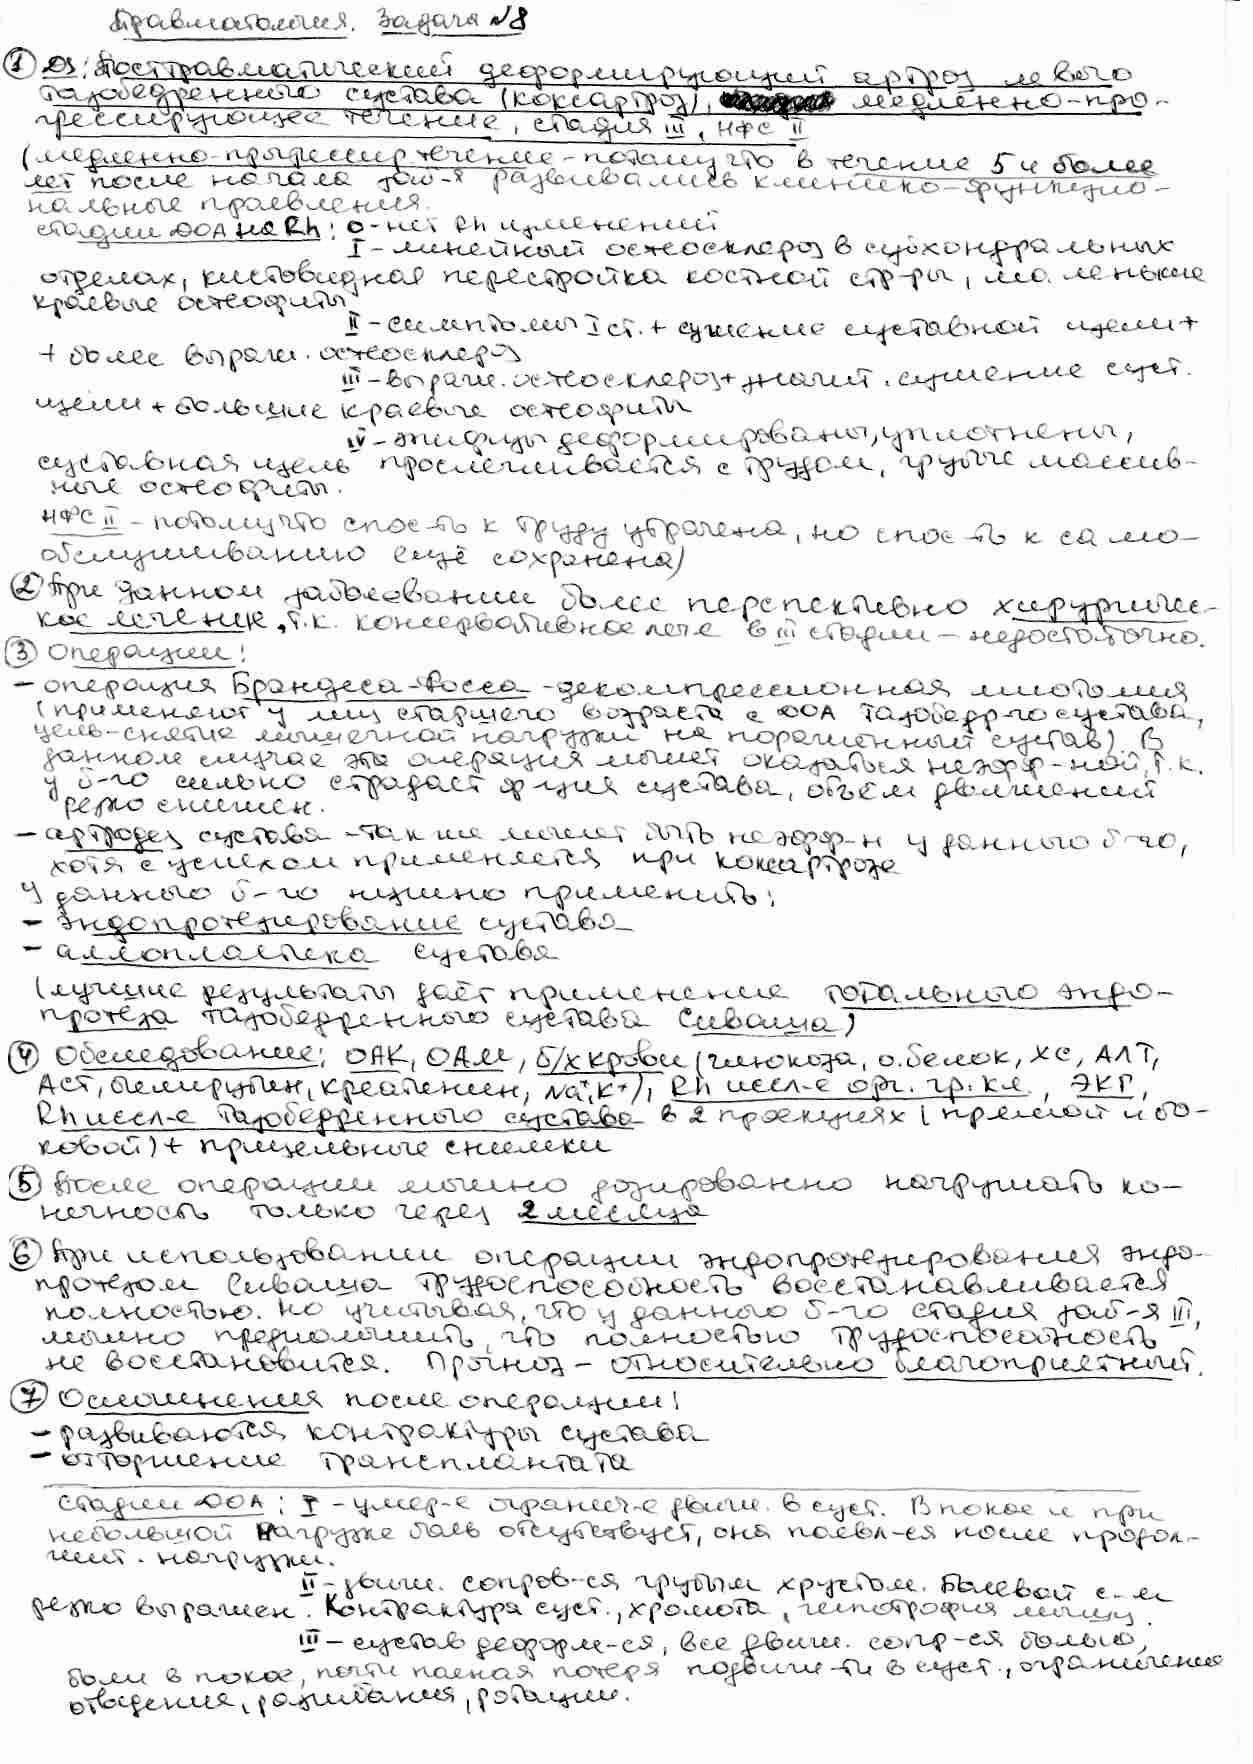 Травматология. Задача №8
① Ds: Посттравматический деформирующий артроз левого
тазобедренного сустава (коксартроз), медленно-про-
грессирующее течение, стадия III, НФС II
(медленно-прогрессир течение - потому что в течение 5 и более
лет после начала заб-я развивались клинико-функцио-
нальные проявления.
стадии ДОА на Rh: 0 - нет Rh изменений
I - линейный остеосклероз в субхондральных
отделах, кистовидная перестройка костной стр-ры, маленькие
краевые остеофиты
II - симптомы I ст. + сужение суставной щели +
+ более выраж. остеосклероз
III - выраж. остеосклероз + значит. сужение суст.
щели + большие краевые остеофиты
IV - эпифизы деформированы, уплотнены,
суставная щель прослеживается с трудом, грубые массив-
ные остеофиты.
НФС II - потому что спос-ть к труду утрачена, но спос-ть к само-
обслуживанию ещё сохранена)
② При данном заболевании более перспективно хирургичес-
кое лечение, т.к. консервативное леч-е в III стадии - недостаточно.
③ Операции:
- операция Брандеса-Фосса - декомпрессионная миотомия
(применяют у лиц старшего возраста с ДОА тазобедр-го сустава,
цель - снятие мышечной нагрузки на пораженный сустав). В
данном случае эта операция может оказаться неэфф-ной, т.к.
у б-го сильно страдает ф-ция сустава, объём движений
резко снижен.
- артродез сустава - также может быть неэфф-н у данного б-го,
хотя с успехом применяется при коксартрозе
У данного б-го нужно применить:
- эндопротезирование сустава
- аллопластика сустава
(лучшие результаты даёт применение тотального эндо-
протеза тазобедренного сустава Сиваша)
④ Обследование: ОАК, ОАМ, б/х крови (глюкоза, о.белок, ХС, АЛТ,
АСТ, билирубин, креатинин, Na⁺, K⁺), Rh иссл-е орг. гр. кл., ЭКГ,
Rh иссл-е тазобедренного сустава в 2 проекциях (прямой и бо-
ковой) + прицельные снимки
⑤ После операции можно дозированно нагружать ко-
нечность только через 2 месяца
⑥ При использовании операции эндопротезирования эндо-
протезом Сиваша трудоспособность восстанавливается
полностью. Но учитывая, что у данного б-го стадия заб-я III,
можно предположить, что полностью трудоспособность
не восстановится. Прогноз - относительно благоприятный.
⑦ Осложнения после операции:
- развиваются контрактуры сустава
- отторжение трансплантата
Стадии ДОА: I - умер-е огранич-е движ. в суст. В покое и при
небольшой нагрузке боль отсутствует, она появл-ся после продол-
жит. нагрузки.
II - движ. сопров-ся грубым хрустом. Болевой с-м
резко выражен. Контрактура суст., хромота, гипотрофия мышц.
III - сустав деформ-ся, все движ. сопр-ся болью,
боли в покое, почти полная потеря подвижн-ти в суст., ограничение
отведения, разгибания, ротации.